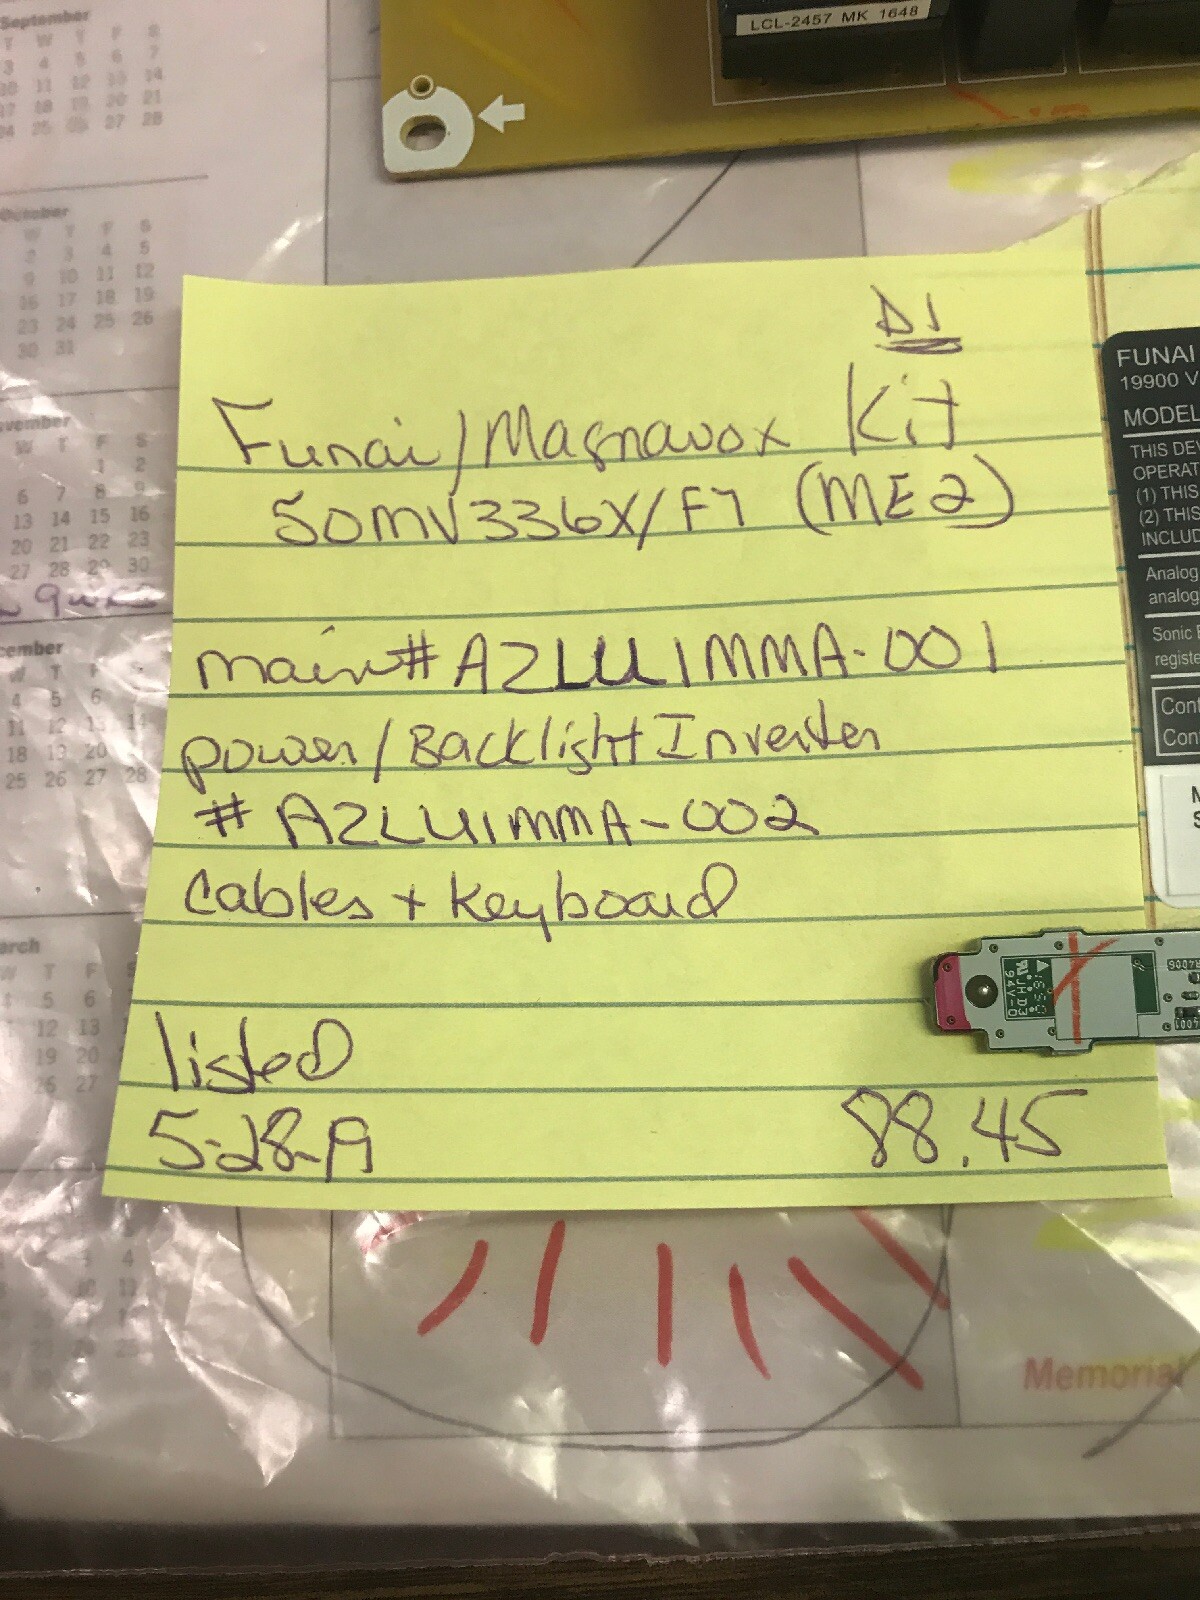 LCL-2457 MK 1648
September
T W T F S
3 4 5 6 7
10 11 12 13 14
17 18 19 20 21
24 25 26 27 28
October
W T F S
2 3 4 5
9 10 11 12
16 17 18 19
23 24 25 26
30 31
vember
W T F S
1 2
6 7 8 9
13 14 15 16
20 21 22 23
27 28 29 30
cember
W T F S
4 5 6
11 12 13 14
18 19 20
25 26 27 28
arch
W T F S
5 6
12 13
19 20
26 27
D1
Funai/Magnavox Kit
50MV336X/F7 (ME2)
main# A2LU1MMA-001
power/Backlight Inverter
# A2LU1MMA-002
Cables + Keyboard
listed
5-28-19 88.45
FUNAI
19900 V
MODEL
THIS DEV
OPERAT
(1) THIS
(2) THIS
INCLUD
Analog
analog
Sonic
registe
Cont
Con
94V-0
Memorial